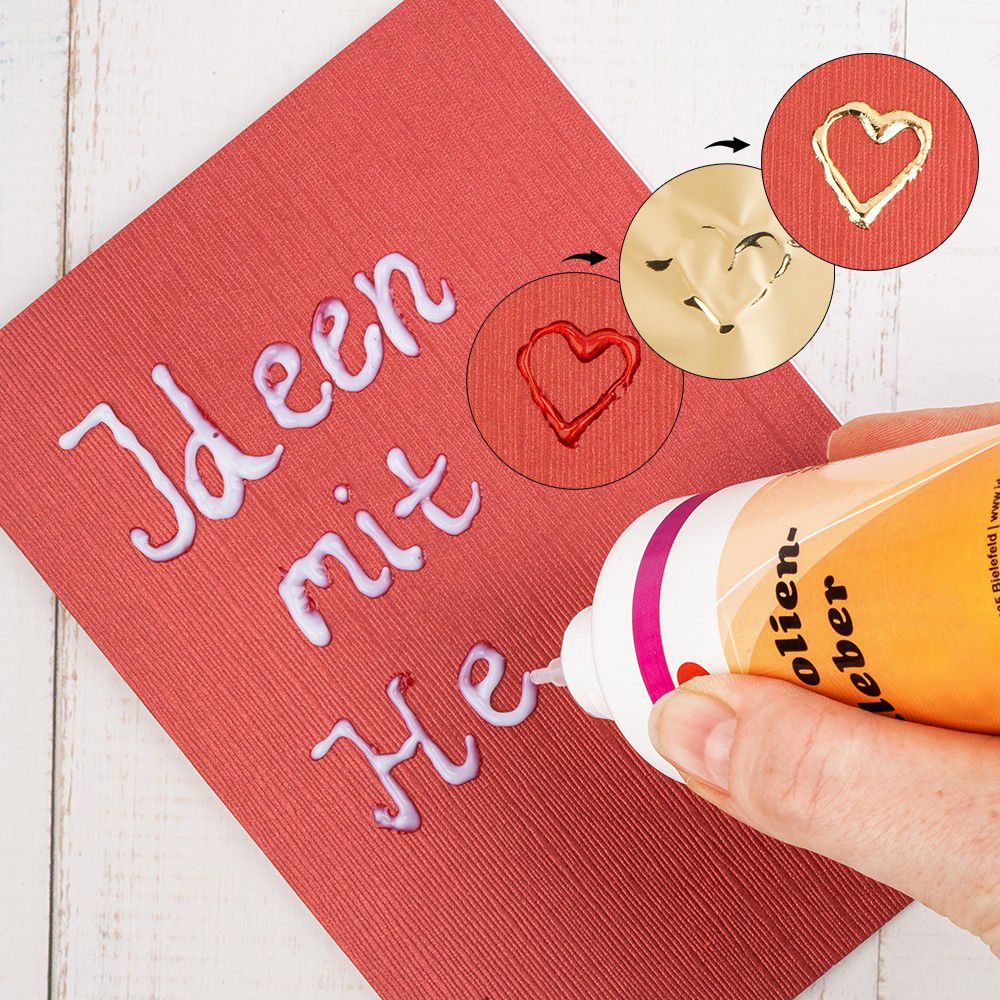 Ideen
mit
He
olien-
leber
5 Bielefeld | www.id